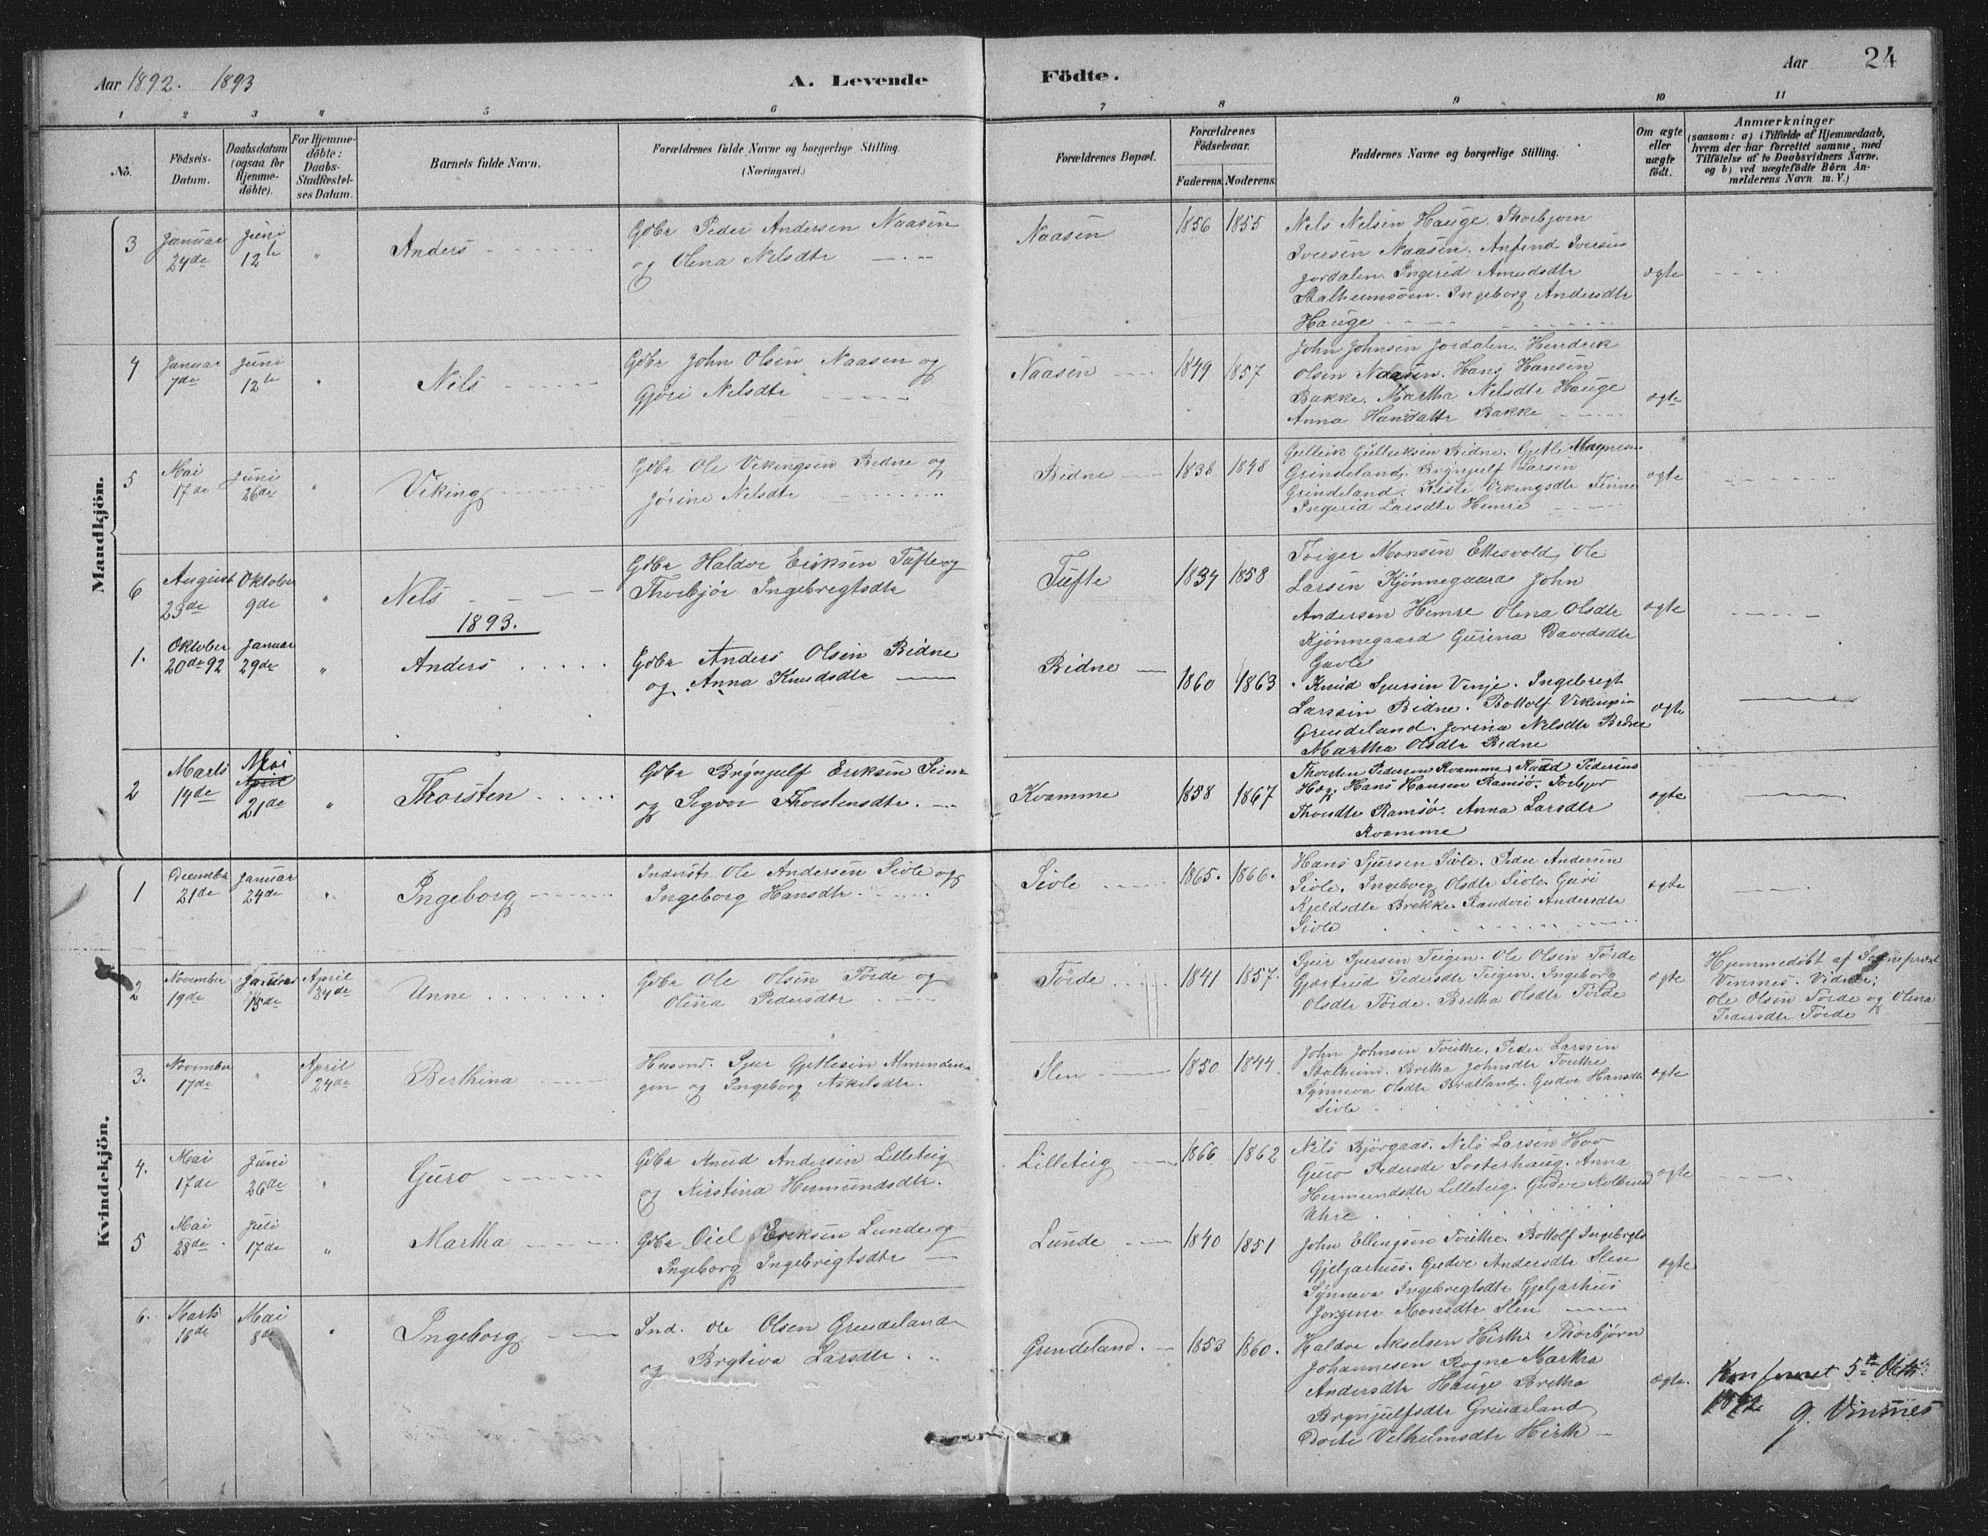 Aar 1892. 1893
A. Levende Födte.
Aar
24
1 2 3 " 5 6 7 8 9 10 11
No.
Födsels-
Datum.
Daabsdatum
(ogsaa for
Hjemme-
döbte).
For Hjemme-
döbte:
Daabs-
Stadfæstel-
ses Datum.
Barnets fulde Navn.
Forældrenes fulde Navne og borgerlige Stilling.
(Næringsvei.)
Forældrenes Bopæl.
Forældrenes
Födselsaar.
Faderens. Moderens.
Faddernes Navne og borgerlige Stilling.
Om ægte
eller
uægte
födt.
Anmærkninger
(saasom: a) i Tilfælde af Hjemmedaab,
hvem der har forrettet samme, med
Tilföielse af to Daabsvidners Navne,
og b) ved uægtefödte Börn An-
melderens Navn m. V.)
Mandkjön.
3
Januar
24de
Juni
12te
"
Anders
Gdbr Peder Andersen Naasen
og Olena Nelsdtr
Naasen
1856 1855
Nels Nelsen Hauge. Thorbjorn
Iversen Naasen. Anfend Iversen
Jordalen. Ingerid Amudsdtr
Stalheimsöen. Ingeborg Andersdtr
Hauge
ægte
4
Januar
7de
Juni
12te
"
Nels
Gdbr John Olsen Naasen og
Gjöri Nelsdtr
Naasen
1849 1857
John Johnsen Jordalen. Hendrik
Olsen Naasen. Hans Hansen
Bakke. Martha Nelsdtr Hauge
Anna Hansdattr Bakke
ægte
5
Mai
17de
Juni
26de
"
Viking
Gdbr Ole Vekingsen Bidne og
Jórine Nelsdtr
Bidne
1838 1848
Gulleik Gulleiksen Bidne. Gjetle Magnesen
Grindeland. Brynjulf Larsen
Grendeland. Kisti Vekingsdtr Tenne
Ingerid Larsdtr Hemre
ægte
6
August
23de
Oktober
9de
"
Nels
Gdbr Haldor Eriksen Tufte og
Thorbjör Ingebregtsdtr
Tufte
1834 1858
Torger Monsen Ettesvold, Ole
Larsen Kjönnegaard John
Andersen Hemre Olena Olsdtr
Kjönnegaard Gurina Davedsdtr
Gavle
ægte
1893.
1.
Oktober
20de 92
Januar
29de
"
Anders
Gdbr Anders Olsen Bidne
og Anna Knudsdtr
Bidne
1860 1863
Knud Sjursen Venje. Ingebregt
Larssen Bidne. Bottolf Vekingsen
Grendeland. Jorina Nelsdtr Bidne
Martha Olsdtr Bidne
ægte
2
Marts
14de
Mai
April
21de
"
Thorsten
Gdbr Brynjulf Eriksen Seim
og Segvor Thorstensdtr.
Kvamme
1858 1867
Thorsten Pedersen Kvamme, Knud Pedersen
Haga. Hans Hansen Ramsö. Torbjor
Thorsdtr Ramsö. Anna Larsdtr
Kvamme
ægte
Kvindekjön.
1
December
21de
Januar
24de
"
Ingeborg
Inderst. Ole Andersen Sivle og
Ingeborg Hansdtr.
Sivle
1865. 1866.
Hans Sjursen Sivle. Peder Andersen
Sivle. Ingeborg Olsdtr Sivle. Guri
Kjeldsdtr Brekke. Randvei Andersdtr
Sivle
ægte
2
November
19de
Januar
15de
April
24de
Unne
Gdbr Ole Olsen Törde og
Olena Pedersdtr
Törde
1841 1857.
Sjur Sjursen Teigen. Ole Olsen Törde
Gjertrud Pedersdtr Teigen. Ingeborg
Olsdtr Törde. Bretha Olsdtr Törde
ægte
Hjemmedöbt af Sogneprest
Vinsnes. Vidner:
Ole Olsen Törde og Olena
Pedersdtr Törde
3.
November
17de
"
April
24de
Berthina
Husmd. Sjur Gjetlesen Almenden-
gen og Ingeborg Askelsdtr.
Slen
1850 1844.
John Johnsen Tvitke. Peder Larssen
Stalheim. Bretha Johnsdtr Tvitke
Synneva Olsdtr Bratland. Gudve Hansdtr
Sivle
ægte
4.
Mai
17de
Juni
26de
"
Guro
Gdbr Knud Andersen Lilleteig
og Kirstina Hermundsdtr.
Lilleteig
1866 1862
Nils Bjórgaas. Nels Larsen Hov
Guro Pedersdr Sosterhaug. Anna
Hermundsdtr Lilleteig. Gudve Kolbens
Uhre
ægte
5
Mai
28de
Juli
17de
"
Martha
Gdbr Oiel Eriksen Lunde og
Ingeborg Ingebregtsdtr
Lunde
1840 1851
John Ellengsen Tvitke. Bottolf Ingebregts
Gjeljarhus. Gudve Andersdtr Slen
Synneva Ingebregtsdtr Gjeljarhus
Jorgene Monsdtr Slen
ægte
6.
Marts
16de
Mai
8de
"
Ingeborg
Ind. Ole Olsen Grendeland
og Brytiva Larsdtr.
Grendeland.
1853 1860.
Haldor Akselsen Hirth. Thorbjörn
Johannesen Rogne Martha
Andersdtr Hauge Bretha
Brynjulfsdtr Grendeland
Dorte Velhelmsdtr Hirth
ægte.
Konfereret 5te Oktr.
1892
G. Vinsnes